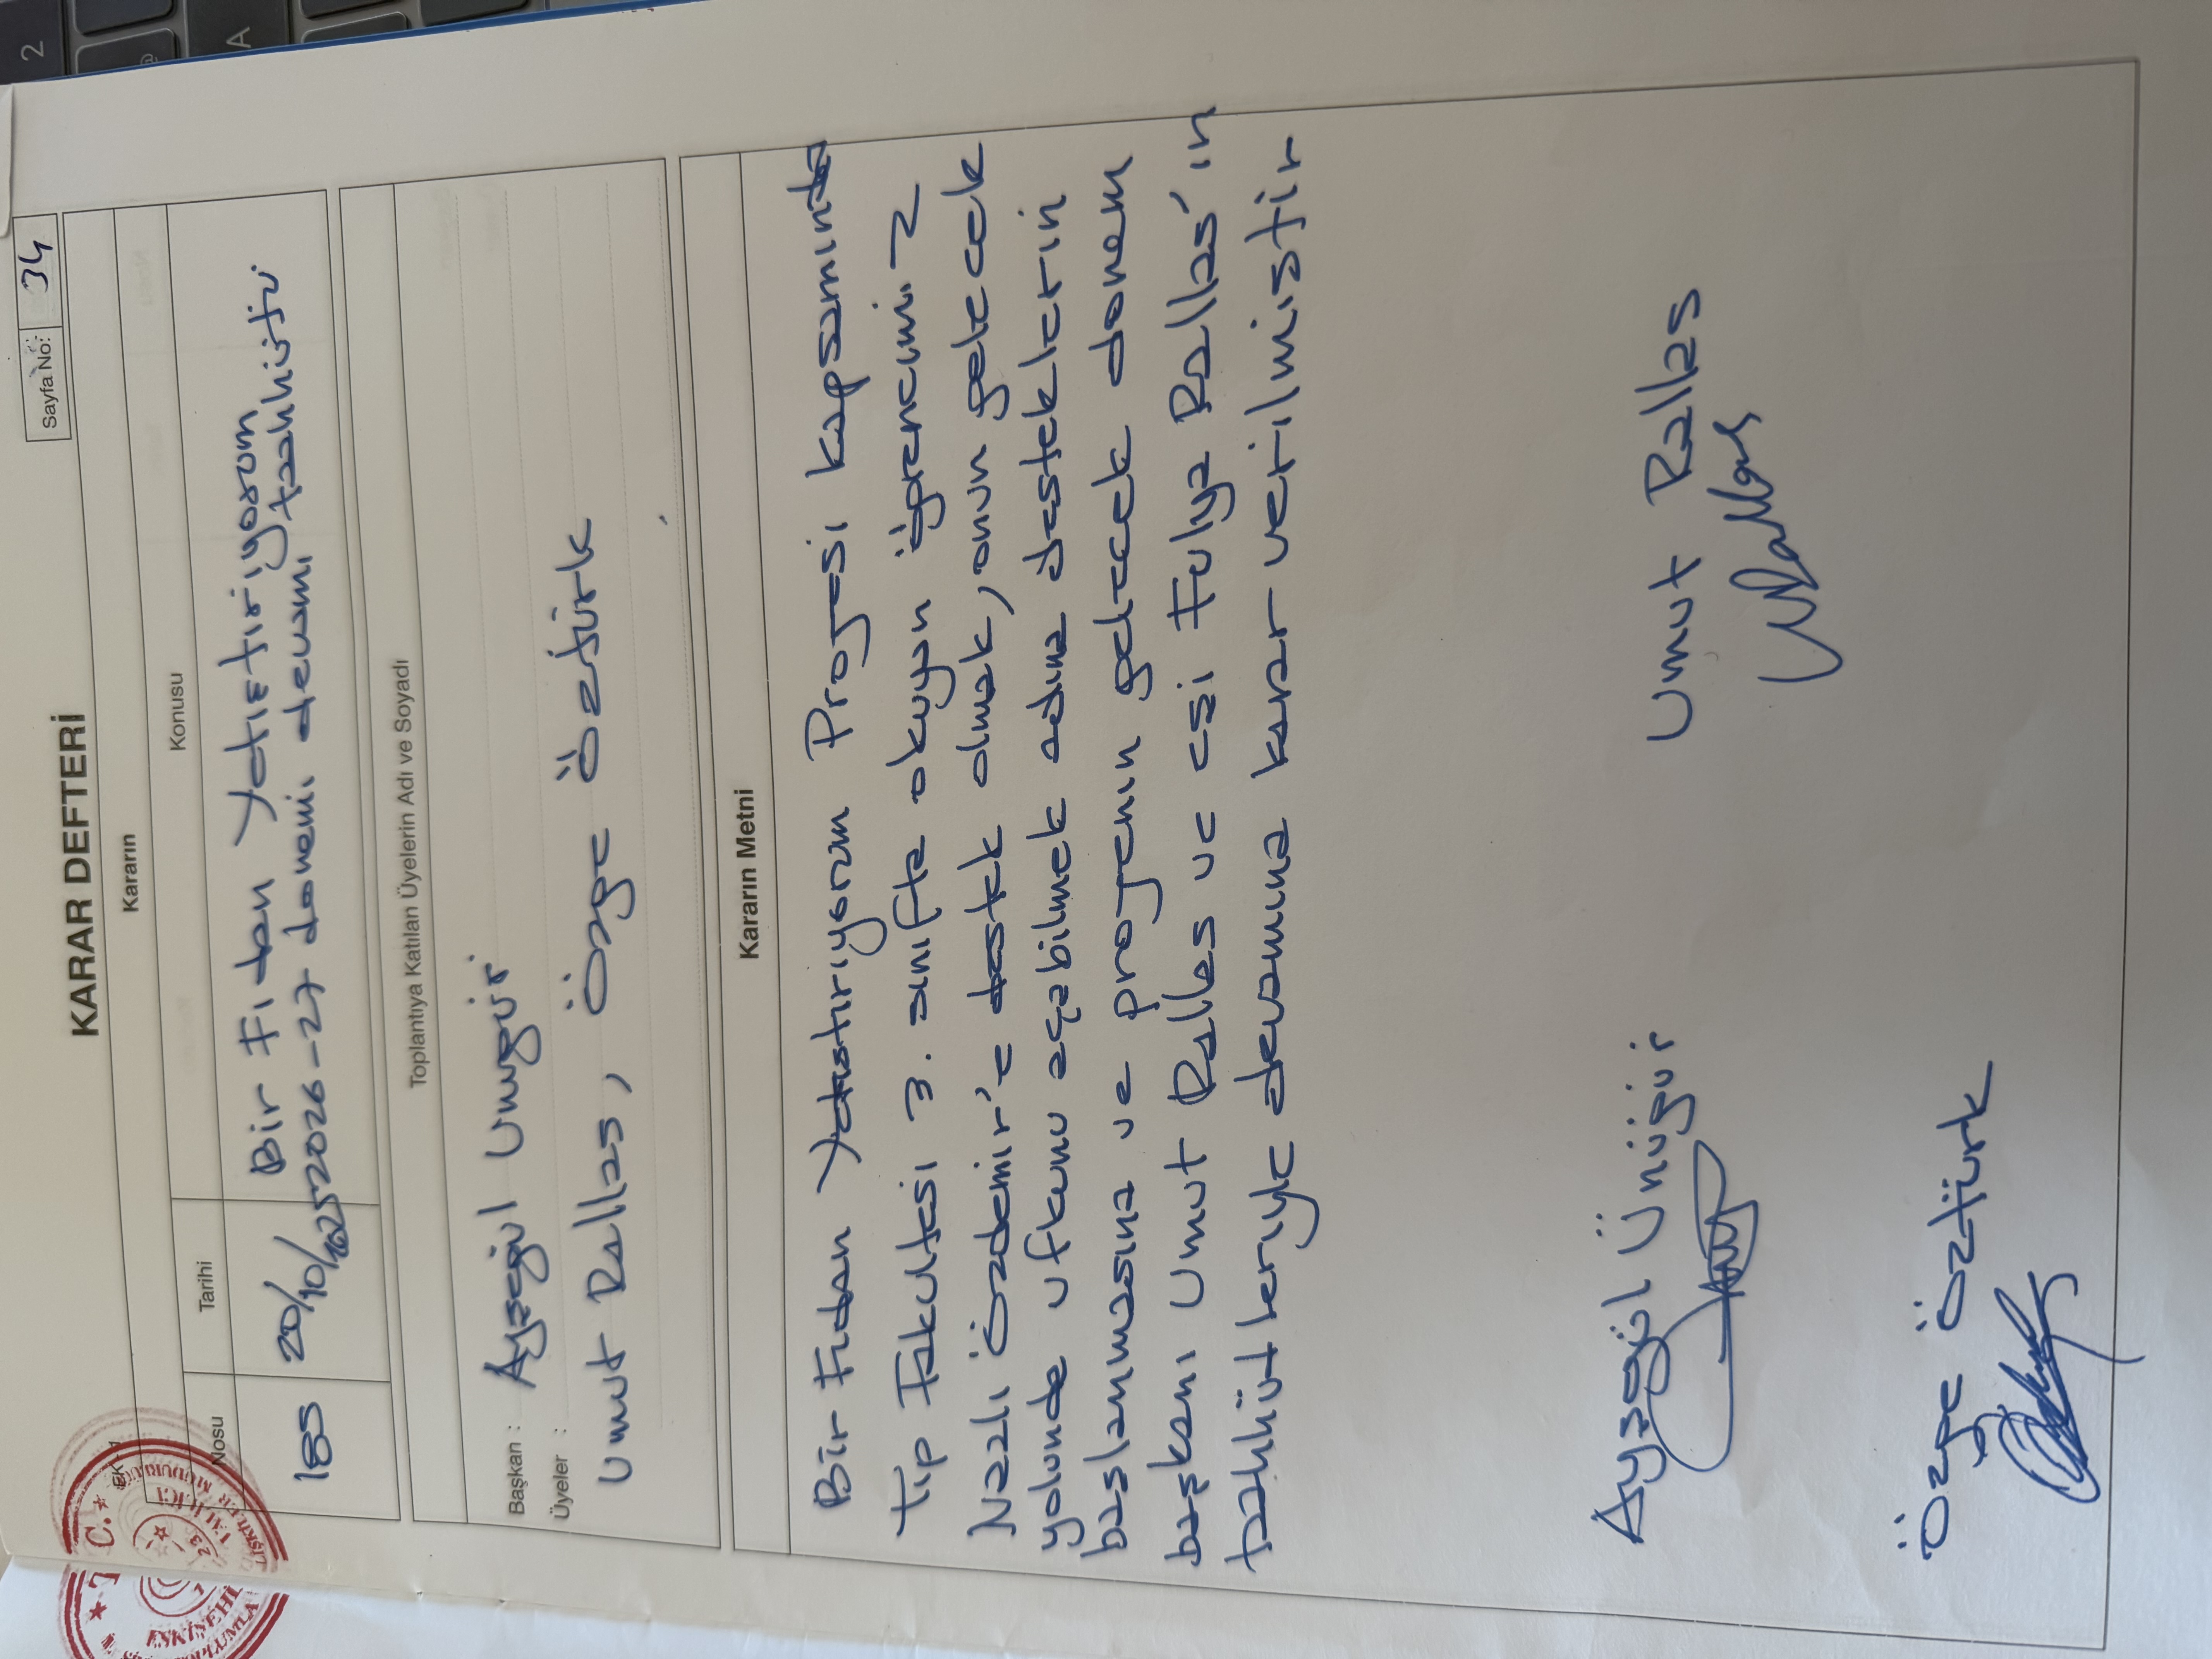 KARAR DEFTERİ
Sayfa No: 34
Kararın
Nosu Tarihi Konusu
185 20/10/2025 Bir Fidan Yetiştiriyorum
2026-27 dönemi devamı taahhütü.
Toplantıya Katılan Üyelerin Adı ve Soyadı
Başkan : Ayşegül Ünügür
Üyeler :
Umut Dallas, Özge Öztürk
Kararın Metni
Bir Fidan Yetiştiriyorum Projesi kapsamında
Tıp Fakültesi 3. sınıfta okuyan öğrencimiz
Nazlı Özdemir'e destek olmak, onun gelecek
yolunda ufkunu açabilmek adına desteklerin
başlanmasına ve projenin gelecek dönem
başkanı Umut Dallas ve eşi Fulya Dallas'ın
taahhütleriyle devamına karar verilmiştir
Ayşegül Ünügür Umut Dallas
Özge Öztürk
T.C.
ESKİŞEHİR VALİLİĞİ